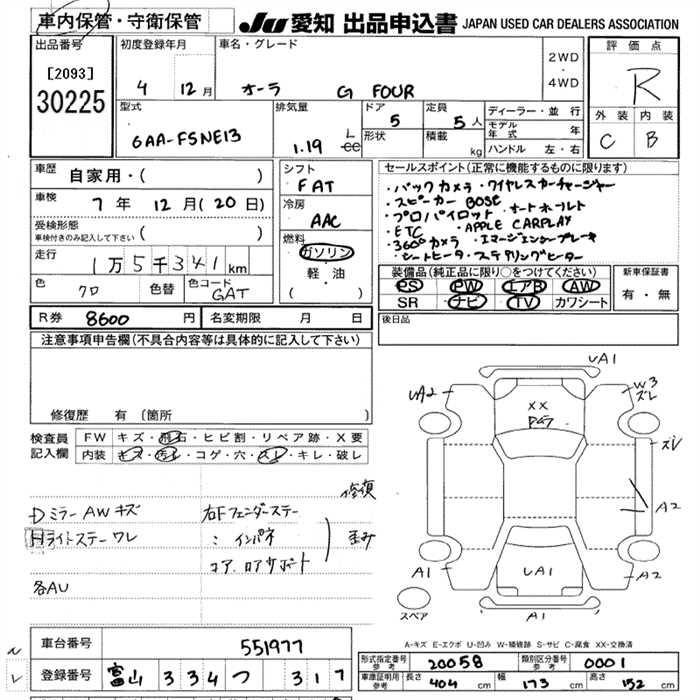 車内保管・守衛保管
JU 愛知 出品申込書 JAPAN USED CAR DEALERS ASSOCIATION
出品番号
[2093]
30225
初度登録年月
4 12月
車名・グレード
オーラ G FOUR
2WD
・
4WD
評価点
R
外装 内装
C B
型式
6AA-FSNE13
排気量
1.19 L
cc
ドア
5
形状
定員
5人
積載
kg
ディーラー・並行
モデル年式 年
ハンドル 左・右
車歴
自家用・( )
車検
7年 12月(20日)
受検形態
車検付きのみ記入して下さい ( )
走行
1万5千341km
色
クロ
色替
色コード
GAT
シフト
FAT
冷房
AAC
燃料
ガソリン
軽・油
( )
セールスポイント(正常に機能するものに限ります)
・バックカメラ ・ワイヤレスカーチャージャー
・スピーカー BOSE
・プロパイロット ・オートホールト
・ETC ・APPLE CARPLAY
・360°カメラ ・エマージェンシーブレーキ
・シートヒータ ・ステアリングヒーター
装備品(純正品に限り○をつけてください)
PS PW エアB AW
SR ナビ TV カワシート
新車保証書
有・無
R券 8600円
名変期限 月 日
後日品
注意事項申告欄(不具合内容等は具体的に記入して下さい)
修復歴 有 (箇所 )
検査員
記入欄
FW キズ・飛石・ヒビ割・リペア跡・X要
内装 キズ・汚れ・コゲ・穴・スレ・キレ・破レ
修復
Dミラー AWキズ
右Fフェンダーステー
Hライトステー ワレ
: インパネ
コア. ロアサポート
歪み
各AU
UA1
UA2
W3
ズレ
XX
ズレ
A2
A1
UA1
A2
A1
スペア
A-キズ E-エクボ U-凹み W-補修跡 S-サビ C-腐食 XX-交換済
車台番号 551977
登録番号 富山 334 つ 317
形式指定番号
参考
20058
類別区分番号
参考
0001
車庫証明用
参考
長さ 404 cm
幅 173 cm
高さ 152 cm